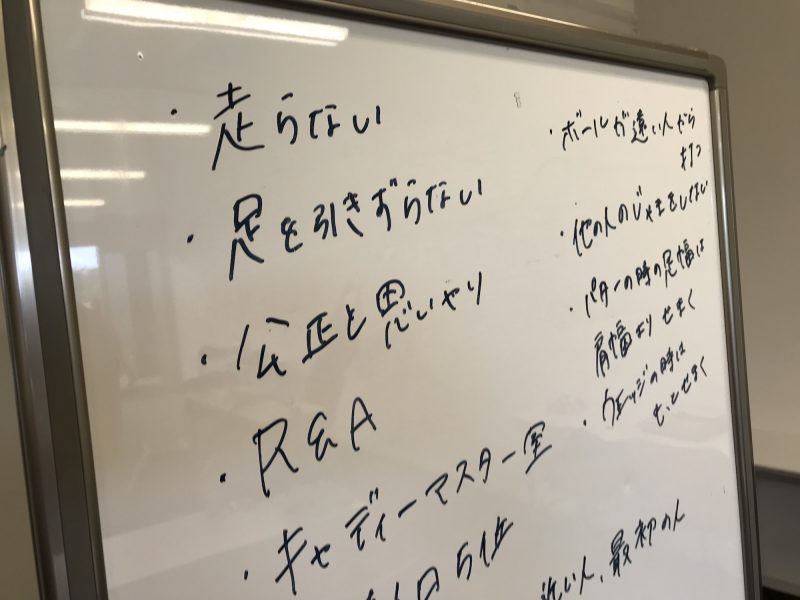 ・走らない
・足を引きずらない
・公正と思いやり
・R&A
・キャディーマスター室
5位
・ボールが遠い人から
打つ
・他の人のじゃまをしない
・パターの時の足幅は
肩幅よりせまく
・ウェッジの時は
もっとせまく
近い人、最初の人